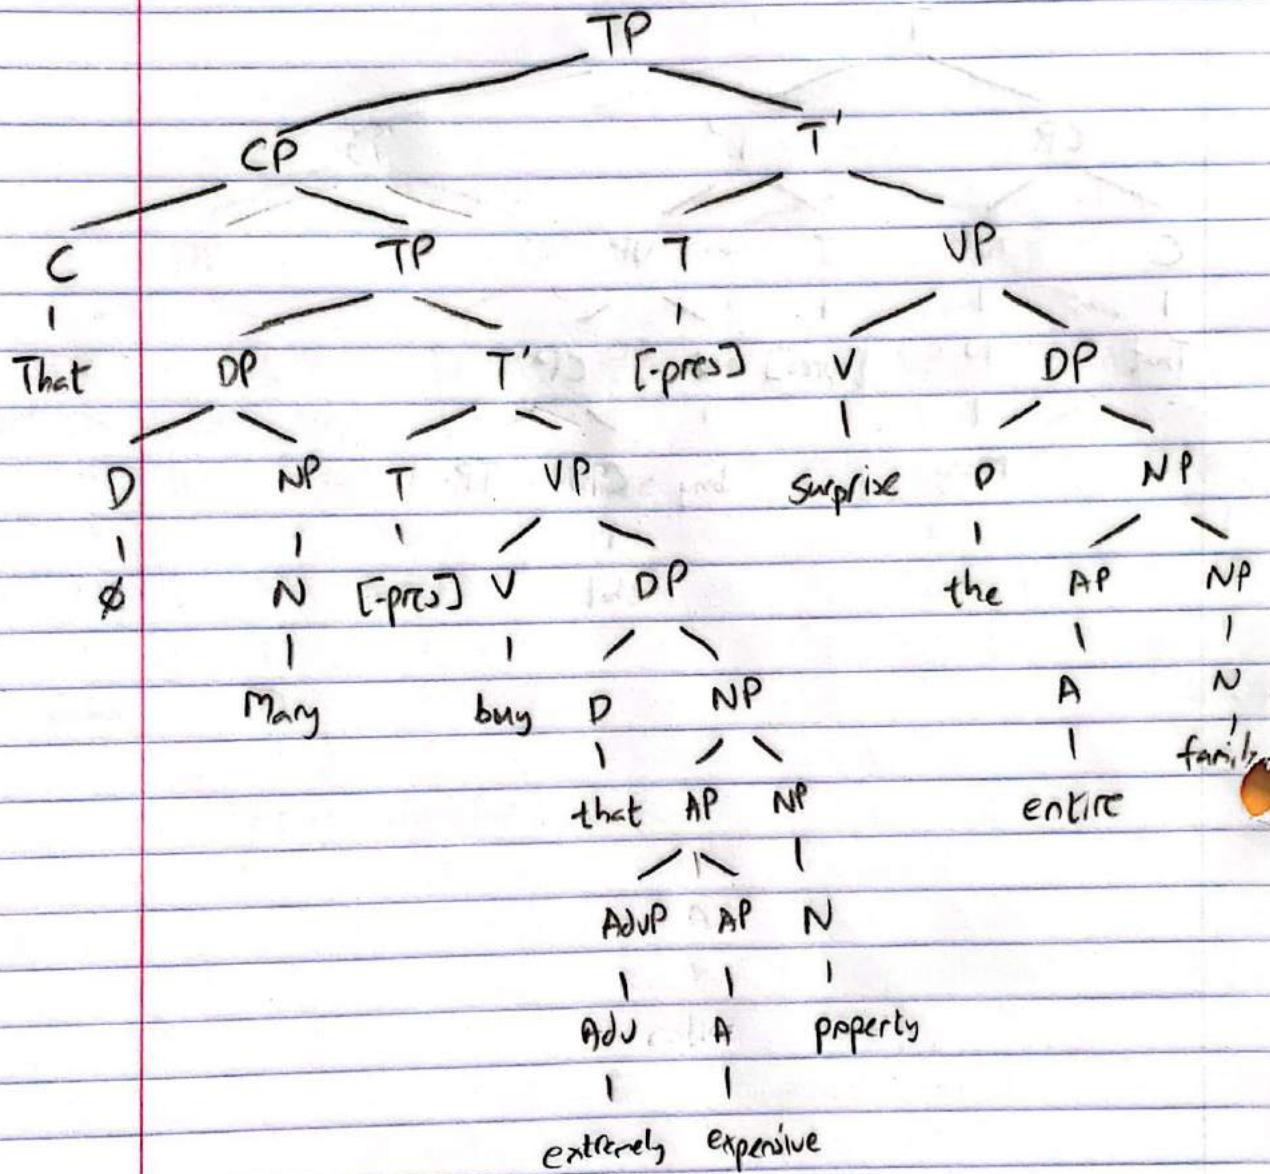 TP
CP T'
C TP T VP
That DP T' [-pres] V DP
D NP T VP surprise D NP
Ø N [-pres] V DP the AP NP
Mary buy D NP A N
that AP NP entire family
AdvP AP N
Adv A property
extremely expensive